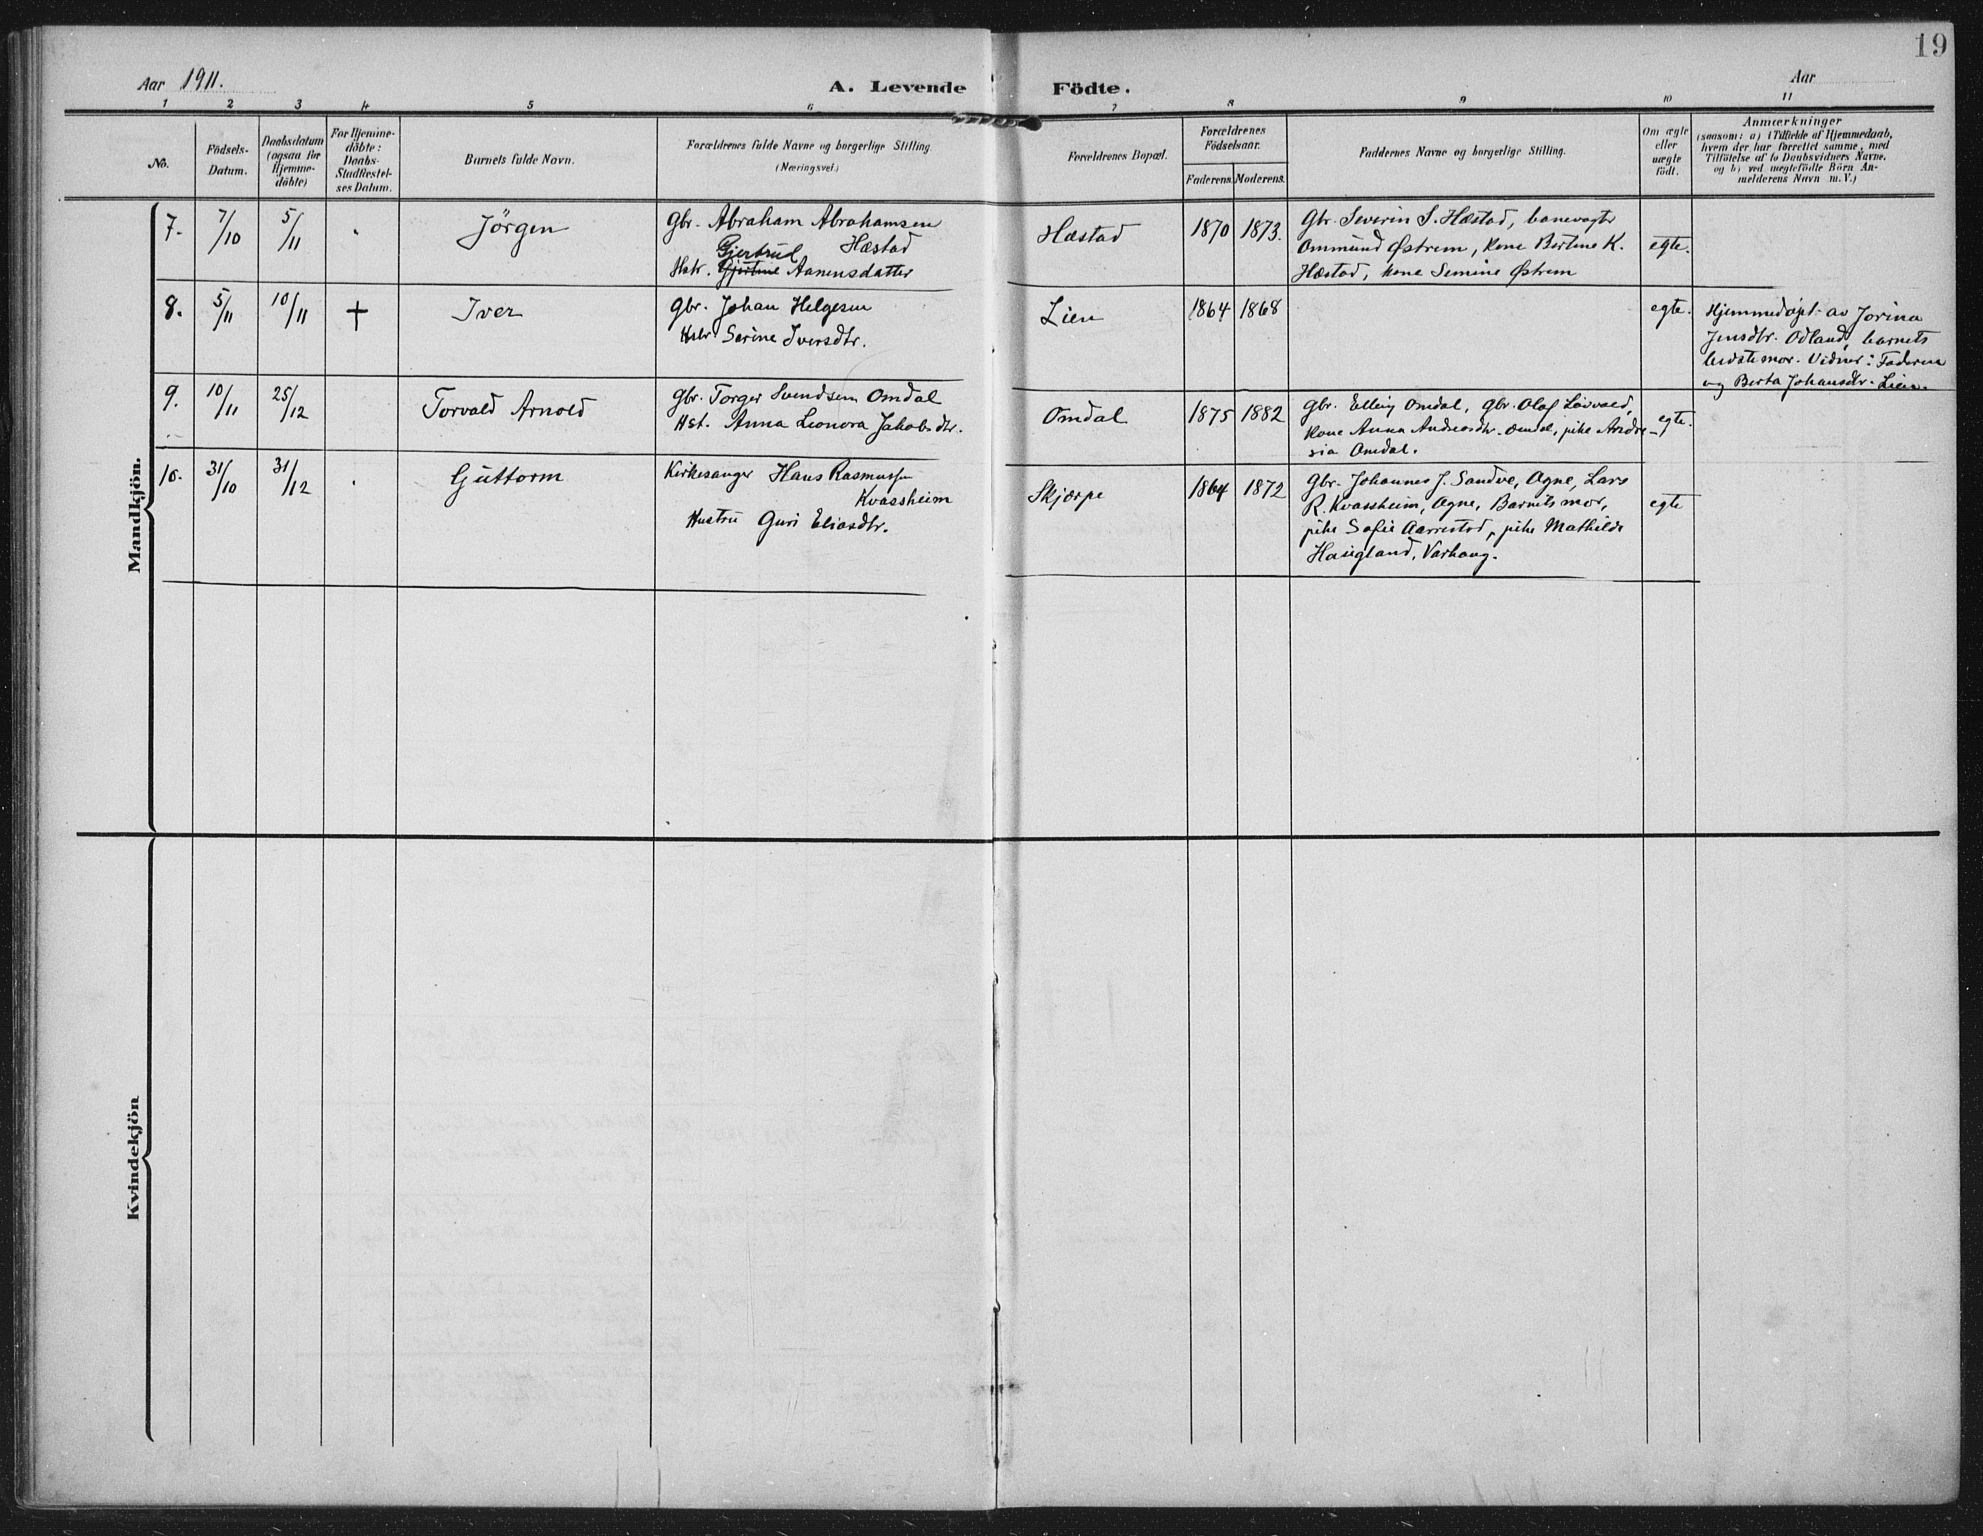 19
Aar 1911.
A. Levende Födte.
Aar
1 2 3 4 5 6 7 8 9 10 11
No.
Födsels-
Datum.
Daabsdatum
(ogsaa for
Hjemme-
döbte)
For Hjemme-
döbte:
Daabs-
Stadfæstel-
ses Datum.
Barnets fulde Navn.
Forældrenes fulde Navne og borgerlige Stilling.
(Næringsvei.)
Forældrenes Bopæl.
Forældrenes
Födselsaar.
Faderens. Moderens.
Faddernes Navne og borgerlige Stilling.
Om ægte
eller
uægte
födt.
Anmærkninger
(saasom: a) i Tilfælde af Hjemmedaab,
hvem der har forrettet samme, med
Tilföielse af to Daabsvidners Navne,
og b) ved uægtefödte Börn An-
melderens Navn m. V.)
Mandkjön.
7. 7/10 5/11 Jörgen
Gbr. Abraham Abrahamsen
Hæstad
Gjertrud
Hstr. Gjertine Aanensdatter
Hæstad 1870 1873.
Gbr. Severin S. Hæstad, banevogter
Ommund Østrem, kone Bertine K.
Hæstad, kone Semine Østrem
egte.
8. 5/11 10/11 + Iver
Gbr. Johan Helgesen
Hstr Serine Iversdtr.
Lien 1864 1868
egte.
Hjemmedøpt av Jorina
Jensdtr. Odland, barnets
bedstemor. Vidner: Faderen
og Berta Johansdtr. Lien.
9. 10/11 25/12 Torvald Arnold
Gbr. Torger Svendsen Omdal
Hst. Anna Leonora Jakobsdtr.
Omdal 1875 1882
Gbr. Elling Omdal, Gbr. Olaf Løvvold,
kone Anna Andreasdtr. Omdal, pike Andre-
sia Omdal.
egte.
10. 31/10 31/12 Guttorm
Kirkesanger Hans Rasmussen
Kvassheim
Hustru Guri Eliasdtr.
Skjærpe 1864 1872
Gbr. Johannes J. Sandve, Ogne, Lars
R. Kvassheim, Ogne, Barnets mor,
pike Sofie Aarrestad, pike Mathilde
Haugland, Varhaug.
egte
Kvindekjön